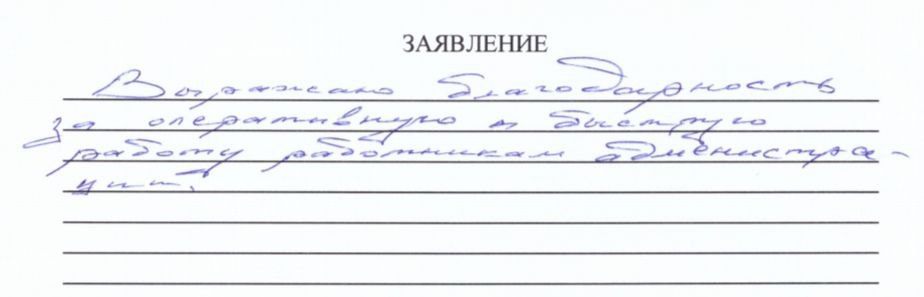 ЗАЯВЛЕНИЕ
Выражаю благодарность
за оперативную и быструю
работу работникам администра-
ции.